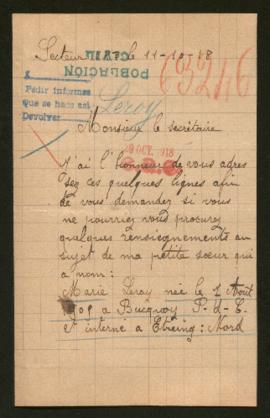 Secteur le 11-10-18
POBLACION
CIVIL
63246
Pedir informes
que se hace así
Devolver
Leroy
Monsieur le secrétaire
29 OCT. 1918
J'ai l'honneur de vous adres
sez ces quelques lignes afin
de vous demandez si vous
ne pourriez vous procurez
quelques renseignements au
sujet de ma petite sœur qui
a nom:
Marie Leroy née le 2 Août
1909 a Bucquoy P-d-C.
et interné a Etreing: Nord